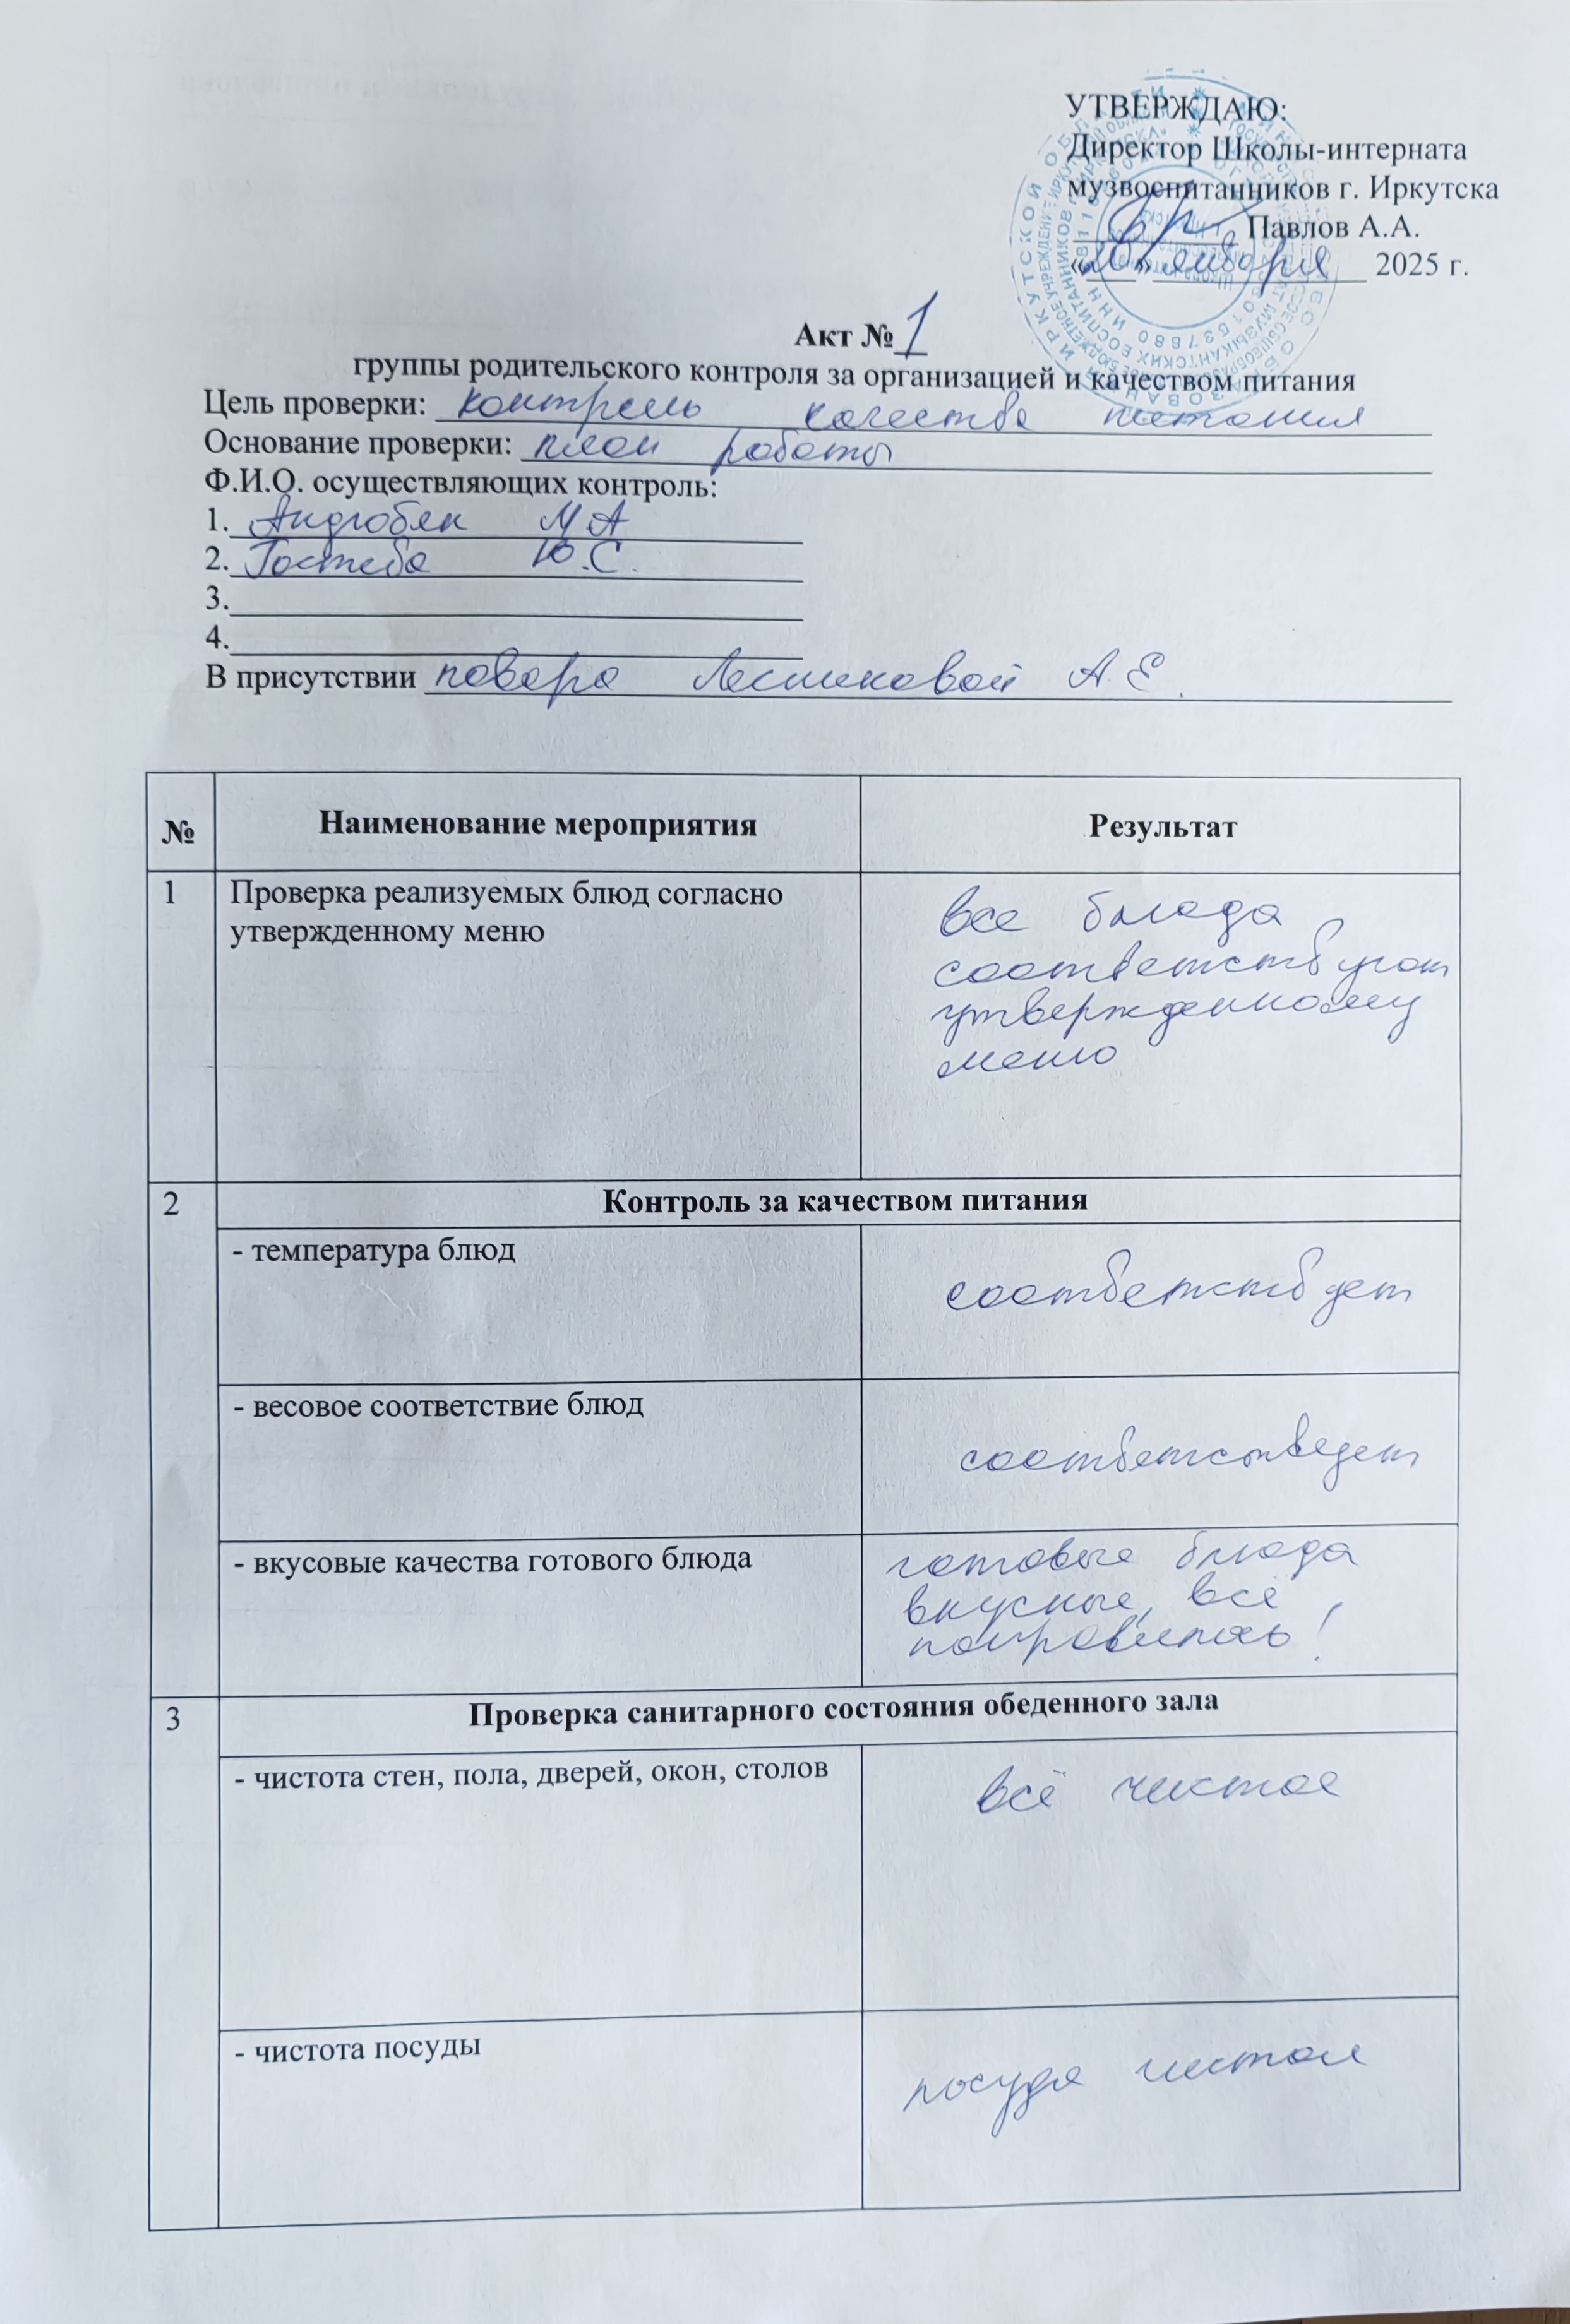 УТВЕРЖДАЮ:
Директор Школы-интерната
музвоспитанников г. Иркутска
Павлов А.А.
«20» января 2025 г.
Акт № 1
группы родительского контроля за организацией и качеством питания
Цель проверки: контроль качества питания
Основание проверки: план работы
Ф.И.О. осуществляющих контроль:
1. М А
2. Гостева Ю.С.
3.
4.
В присутствии повара А.Е.
№ Наименование мероприятия Результат
1 Проверка реализуемых блюд согласно
утвержденному меню
все блюда
соответствуют
утвержденному
меню
2 Контроль за качеством питания
- температура блюд соответствует
- весовое соответствие блюд соответствует
- вкусовые качества готового блюда
готовые блюда
вкусные, всё
понравилась!
3 Проверка санитарного состояния обеденного зала
- чистота стен, пола, дверей, окон, столов всё чистое
- чистота посуды посуда чистая